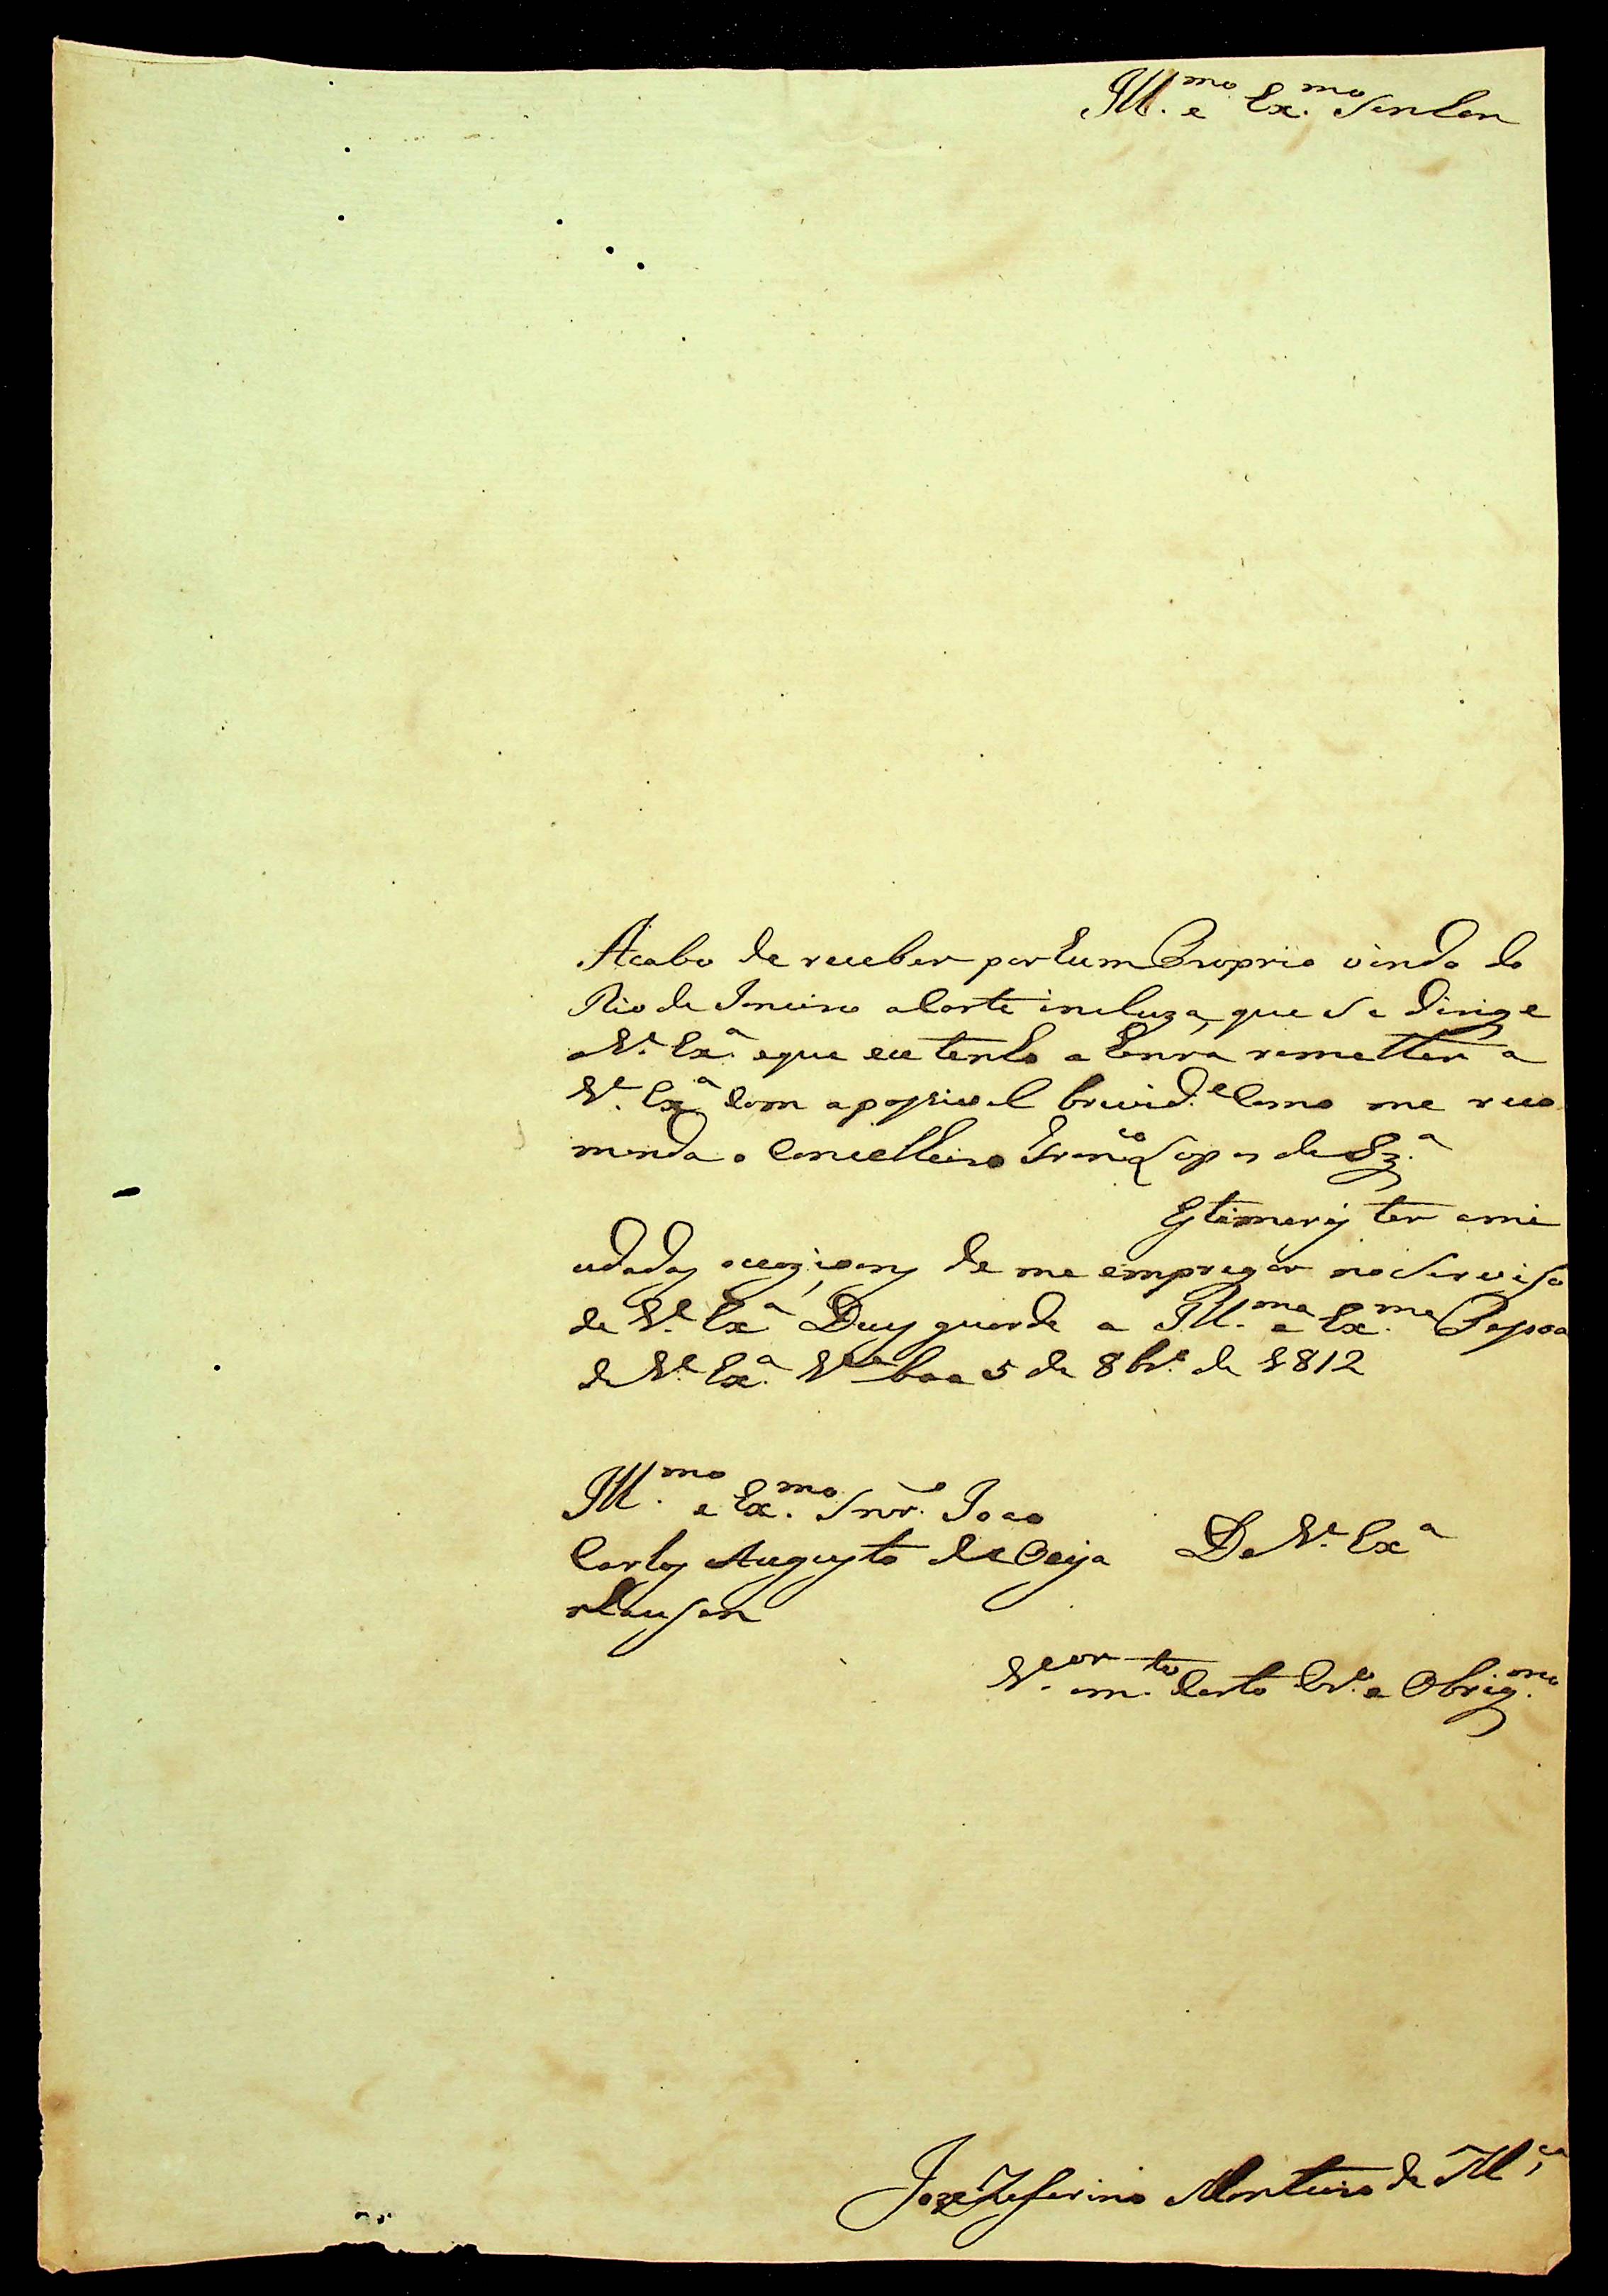 Ill.mo e Ex.mo Senhor
Acabo de receber por hum Proprio vindo do
Rio de Janeiro a Carta incluza, que se dirige
a V.ª Ex.ª e que eu tenho a honra remetter a
V.ª Ex.ª com a possivel brevid.e como me reco
menda o Conselheiro Fran.co Lopes de Sz.ª
Estimarej ter ami
udadas occazioens de me empregar no Serviso
de V.ª Ex.ª Deus guarde a Ill.ma e Ex.ma Pessoa
de V.ª Ex.ª V.ª boa 5 de 8br.º de 1812
Ill.mo e Ex.mo Snr. Joao
Carlos Augusto de Oeÿn
hausen
De V.ª Ex.ª
V.or am.to Certo Cr.º e Obrig.mo
Joze Zeferino Monteiro de M.ça